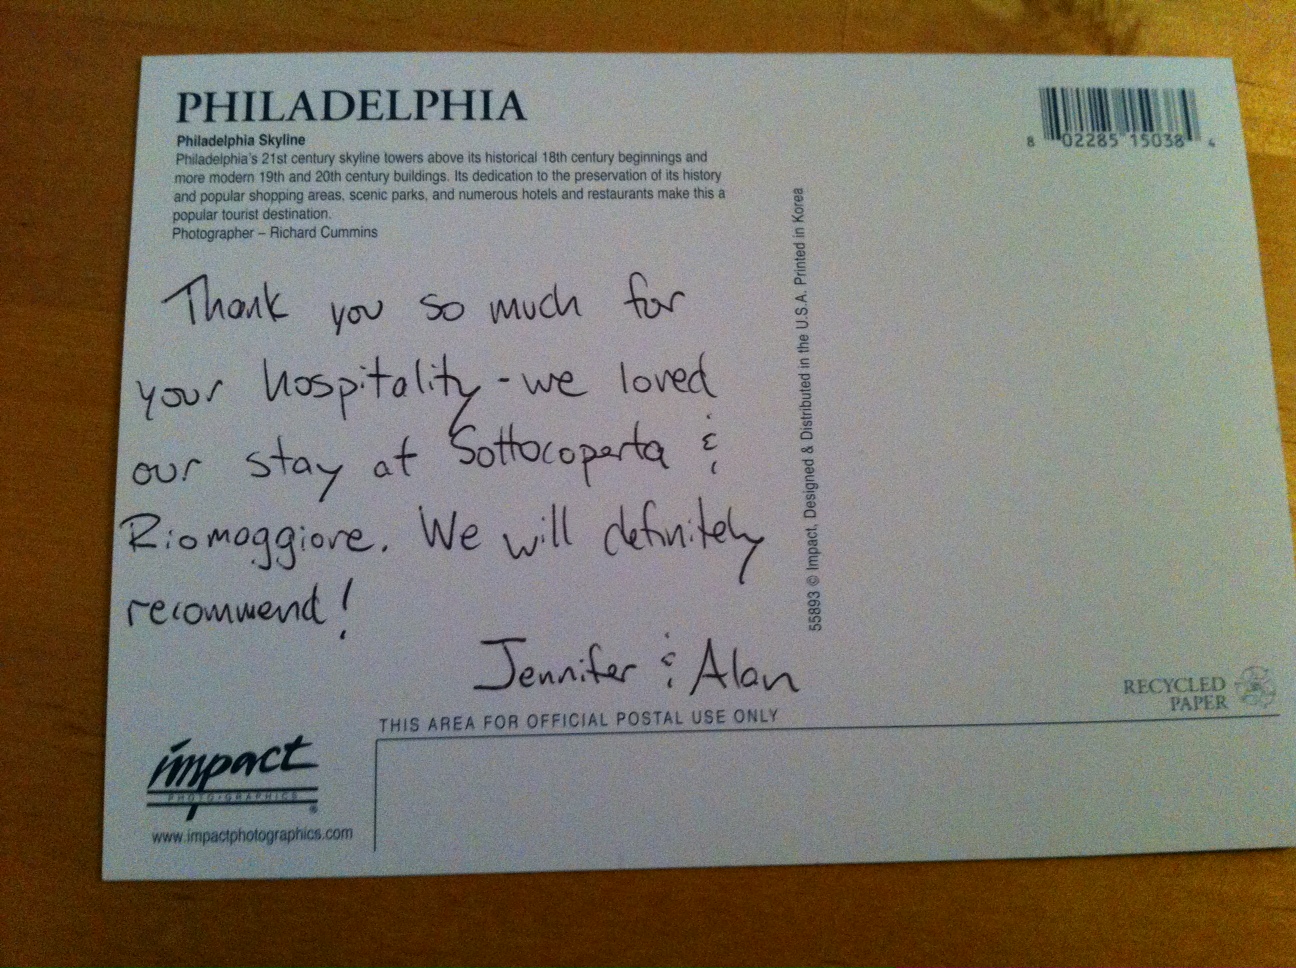 PHILADELPHIA
Philadelphia Skyline
Philadelphia's 21st century skyline towers above its historical 18th century beginnings and
more modern 19th and 20th century buildings. Its dedication to the preservation of its history
and popular shopping areas, scenic parks, and numerous hotels and restaurants make this a
popular tourist destination.
Photographer – Richard Cummins
8 02285 15038 4
Thank you so much for
your hospitality - we loved
our stay at Sottocoperta &
Riomaggiore. We will definitely
recommend!
Jennifer & Alan
55893 © Impact, Designed & Distributed in the U.S.A. Printed in Korea
RECYCLED
PAPER
THIS AREA FOR OFFICIAL POSTAL USE ONLY
impact
PHOTO•GRAPHICS
®
www.impactphotographics.com